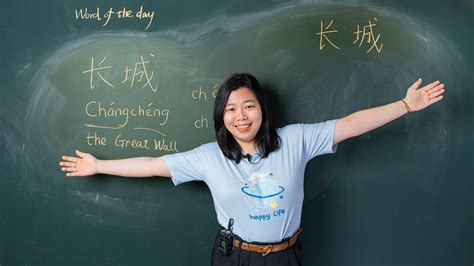 Word of the day
长城
长城
Chángchéng
the Great Wall
ch
ch
happy Life